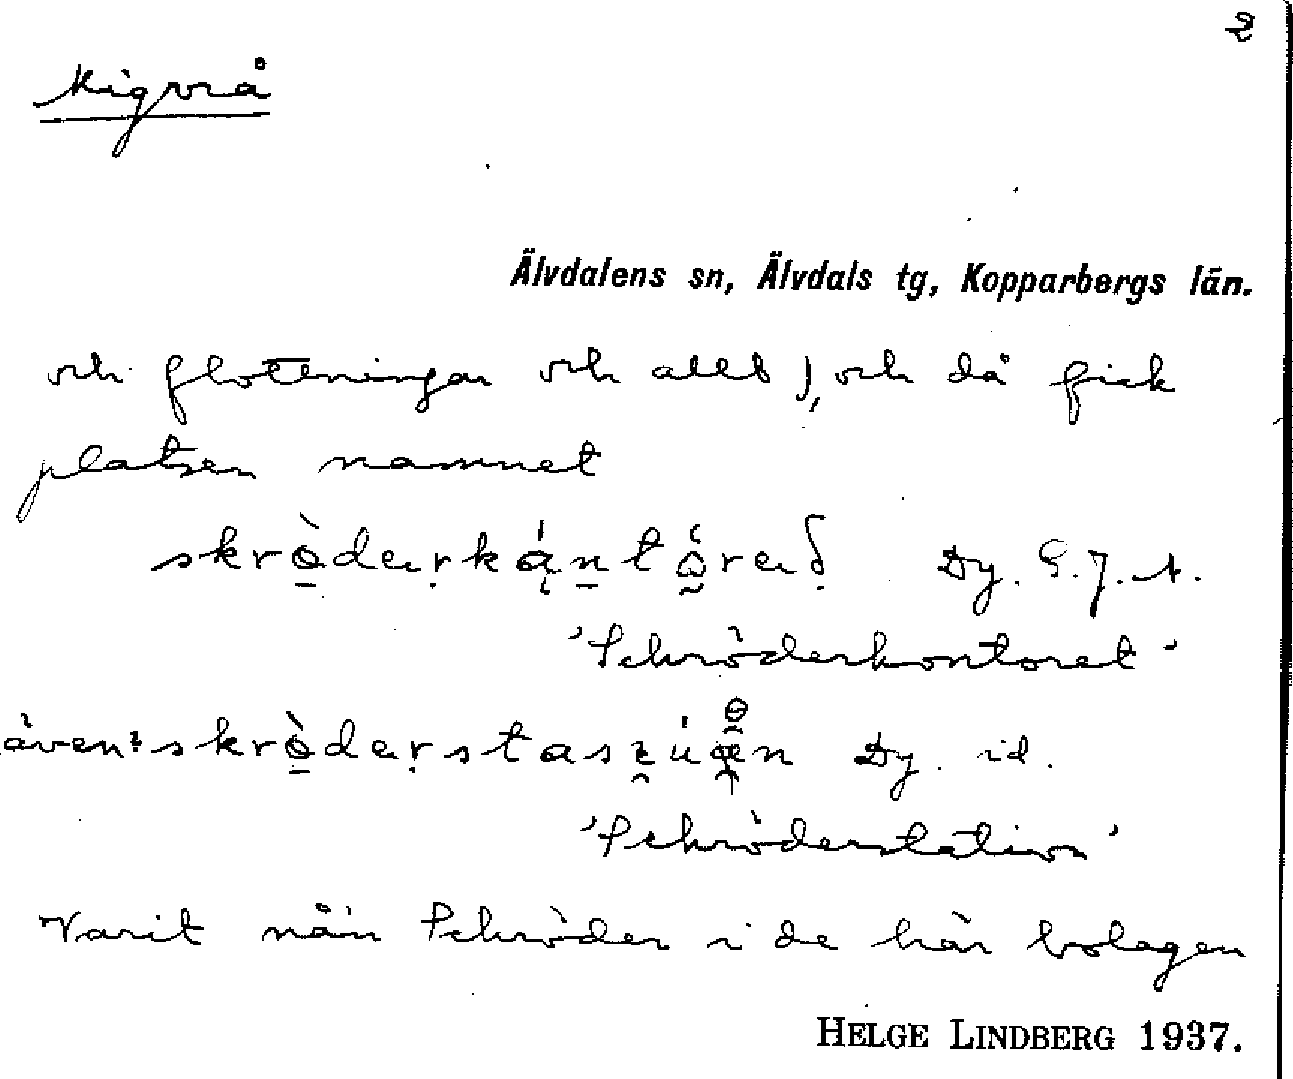 2
Kigvrå
Älvdalens sn, Älvdals tg, Kopparbergs län.
och flottningar och allt), och då fick
platsen namnet
Dy. E.J.A.
'Schröderkontoret'
även: Dy. id.
'Schröderstation'
Varit nån Schröder i de här bolagen
HELGE LINDBERG 1937.